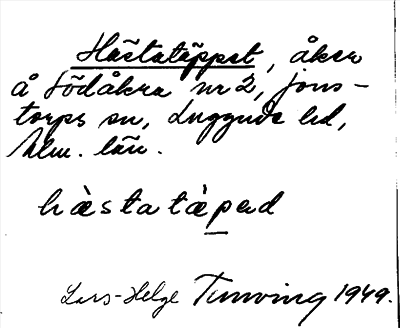 Hästatäppet, åker
å Södåkra nr 2, Jons-
torps sn, Luggude hd,
Mlm. län.
hästatäpəd
Lars-Helge Tunving 1949.